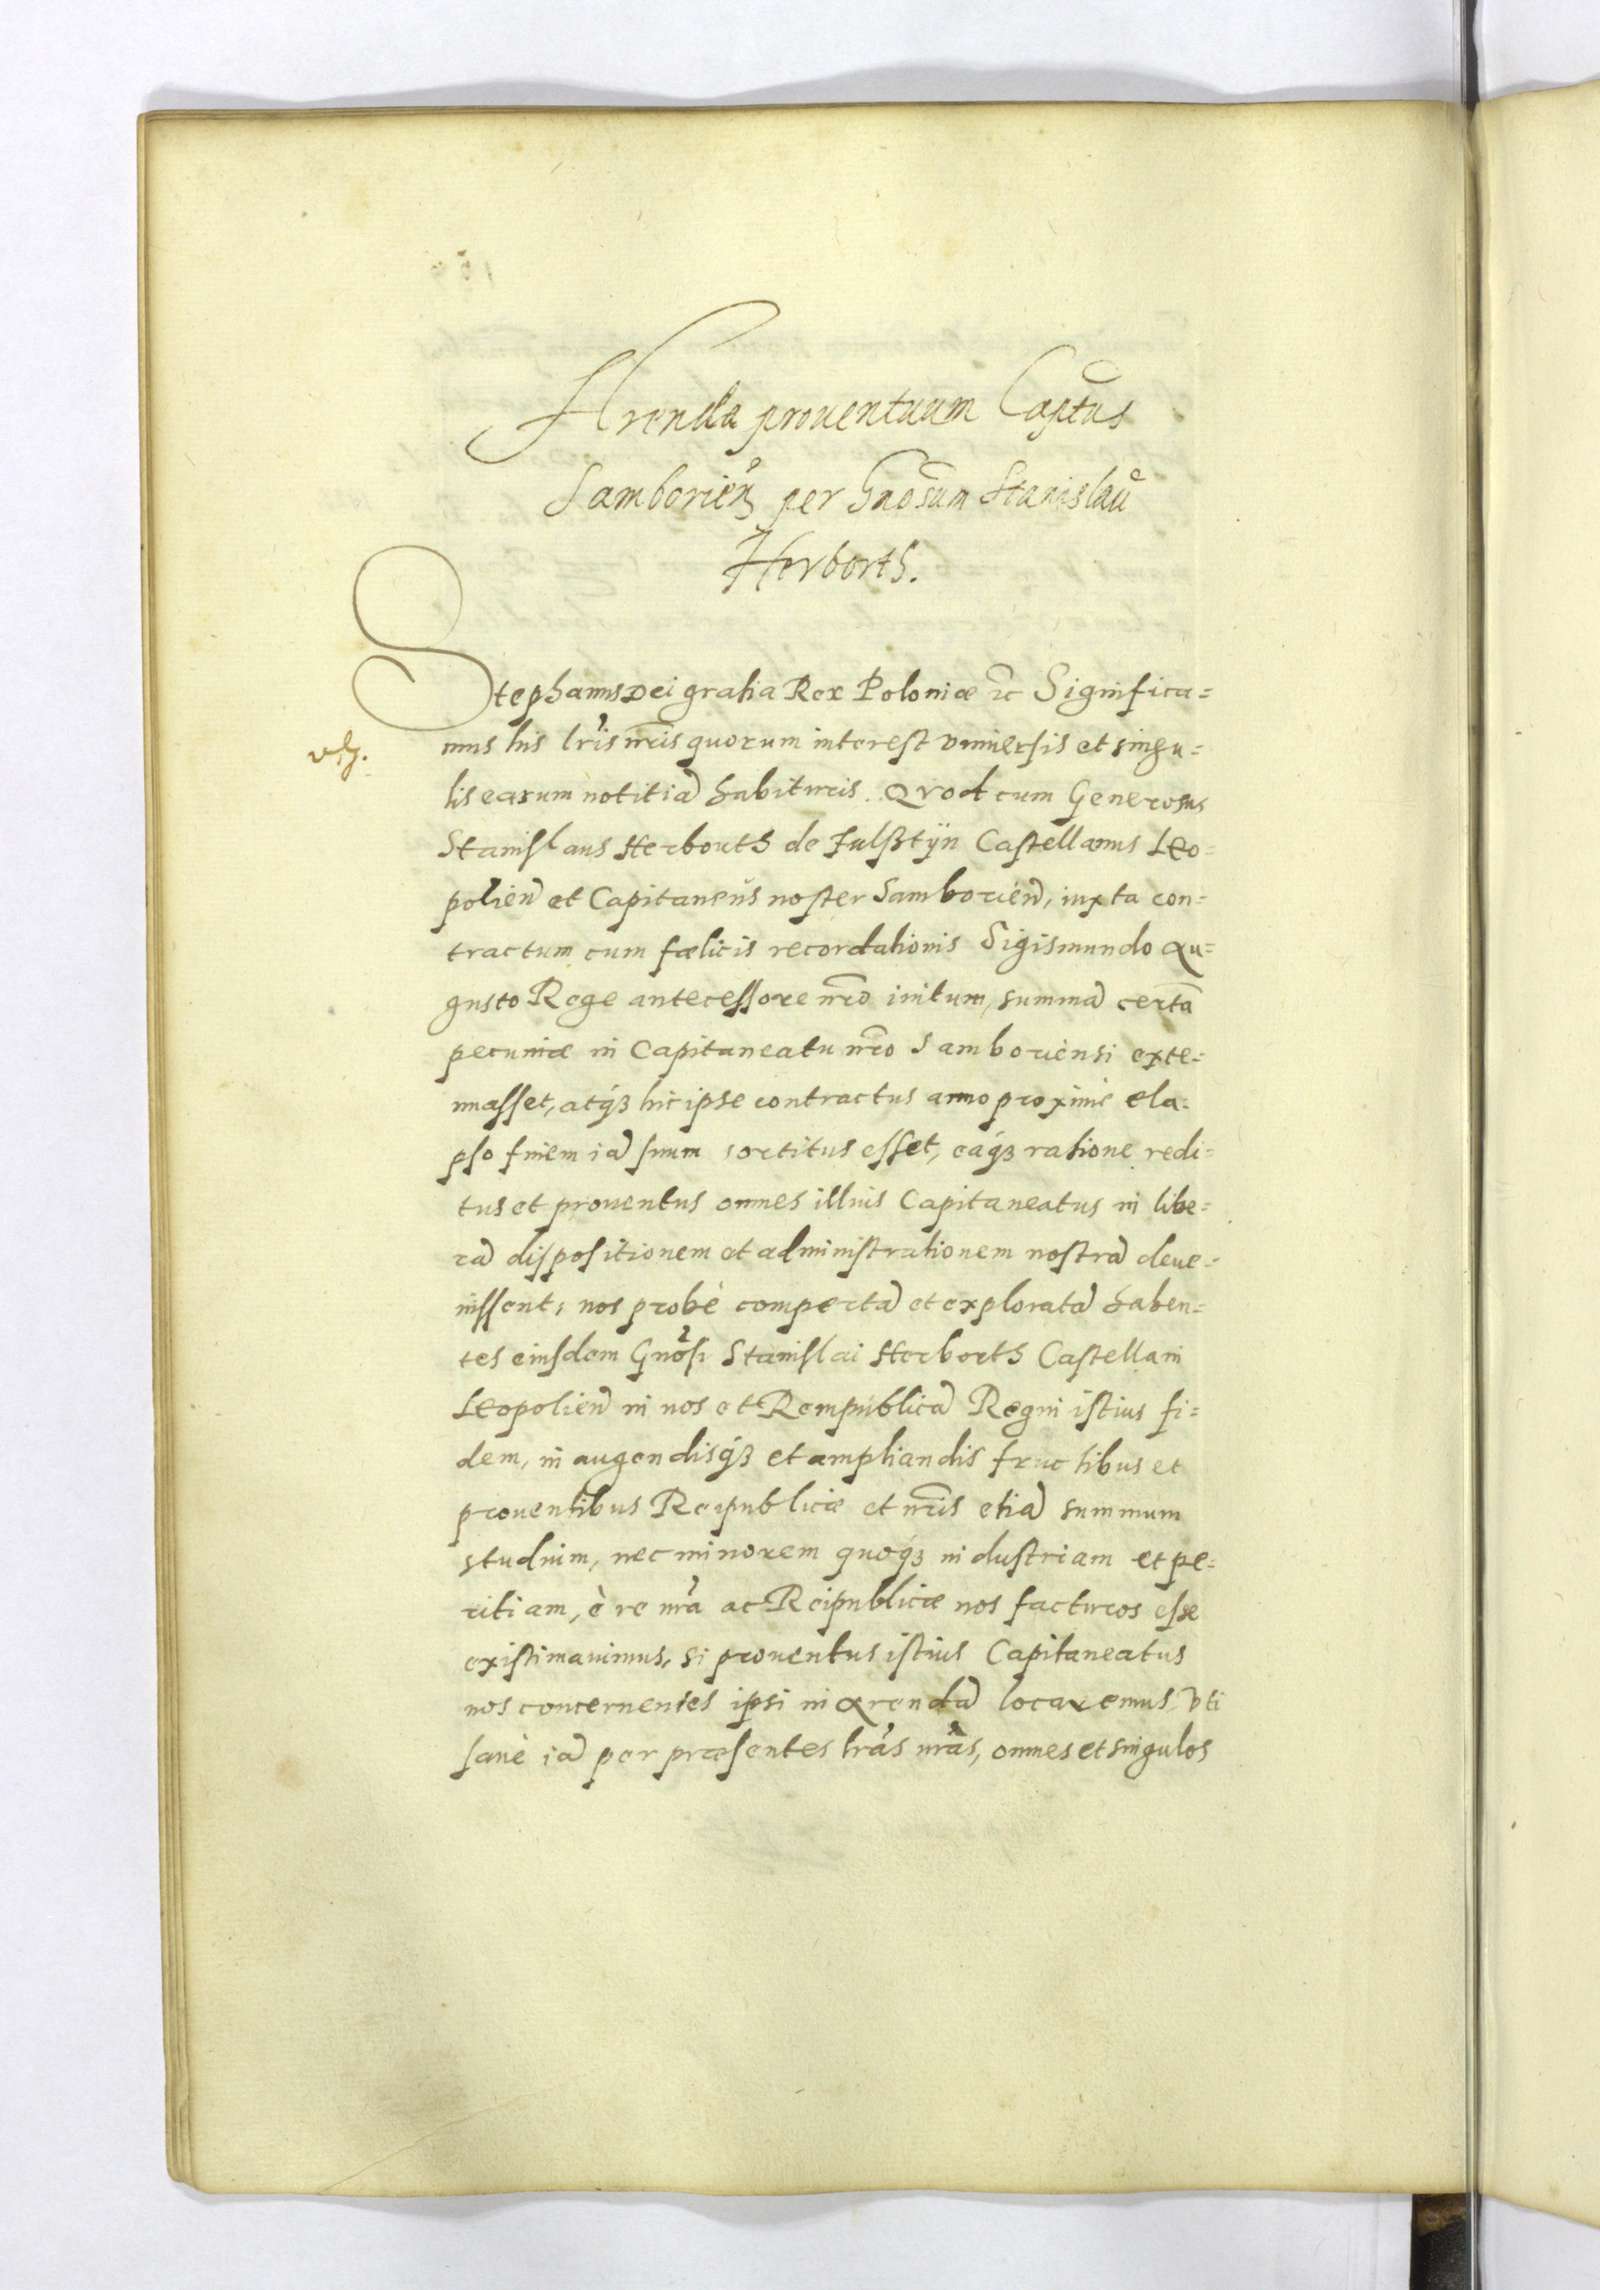 Arenda prouentuum Captus
Samborien per Gnosum Stanislaū
Herborth.
Stephanus Dei gratia Rex Poloniæ etc Significa=
mus his lris nr̄is quorum interest vniuersis et singu=
lis earum notitiā habituris. Quod cum Generosus
Stanislaus Herborth de Fulßtÿn Castellanus Leo=
polien̄ et Capitaneus noster Samborien̄, iuxta con=
tractum cum fælicis recordationis Sigismundo Au=
gusto Rege antecessore nr̄o initum, summā certā
pecuniæ in Capitaneatu nr̄o Samboriensi exte=
nuasset, atq́ꝫ hic ipse contractus anno proximè ela=
pso finem iā suum sortitus esset, eaq́ꝫ ratione redi=
tus et prouentus omnes illius Capitaneatus in libe=
rā dispositionem et administrationem nostrā deue=
nissent, nos probè compertā et exploratā haben=
tes eiusdem Gnosi Stanislai Herborth Castellani
Leopolien̄ in nos et Rempublicā Regni istius fi=
dem, in augendisq́ꝫ et ampliandis fructibus et
prouentibus Reipublicæ et nr̄is etiā summum
studium, nec minorem quoq́ꝫ industriam et pe=
ritiam, è re nr̄a ac Reipublicæ nos facturos esse
existimauimus, si prouentus istius Capitaneatus
nos concernentes ipsi in arendā locaremus, vti
sanè iā per præsentes lr̄as nr̄as, omnes et singulos